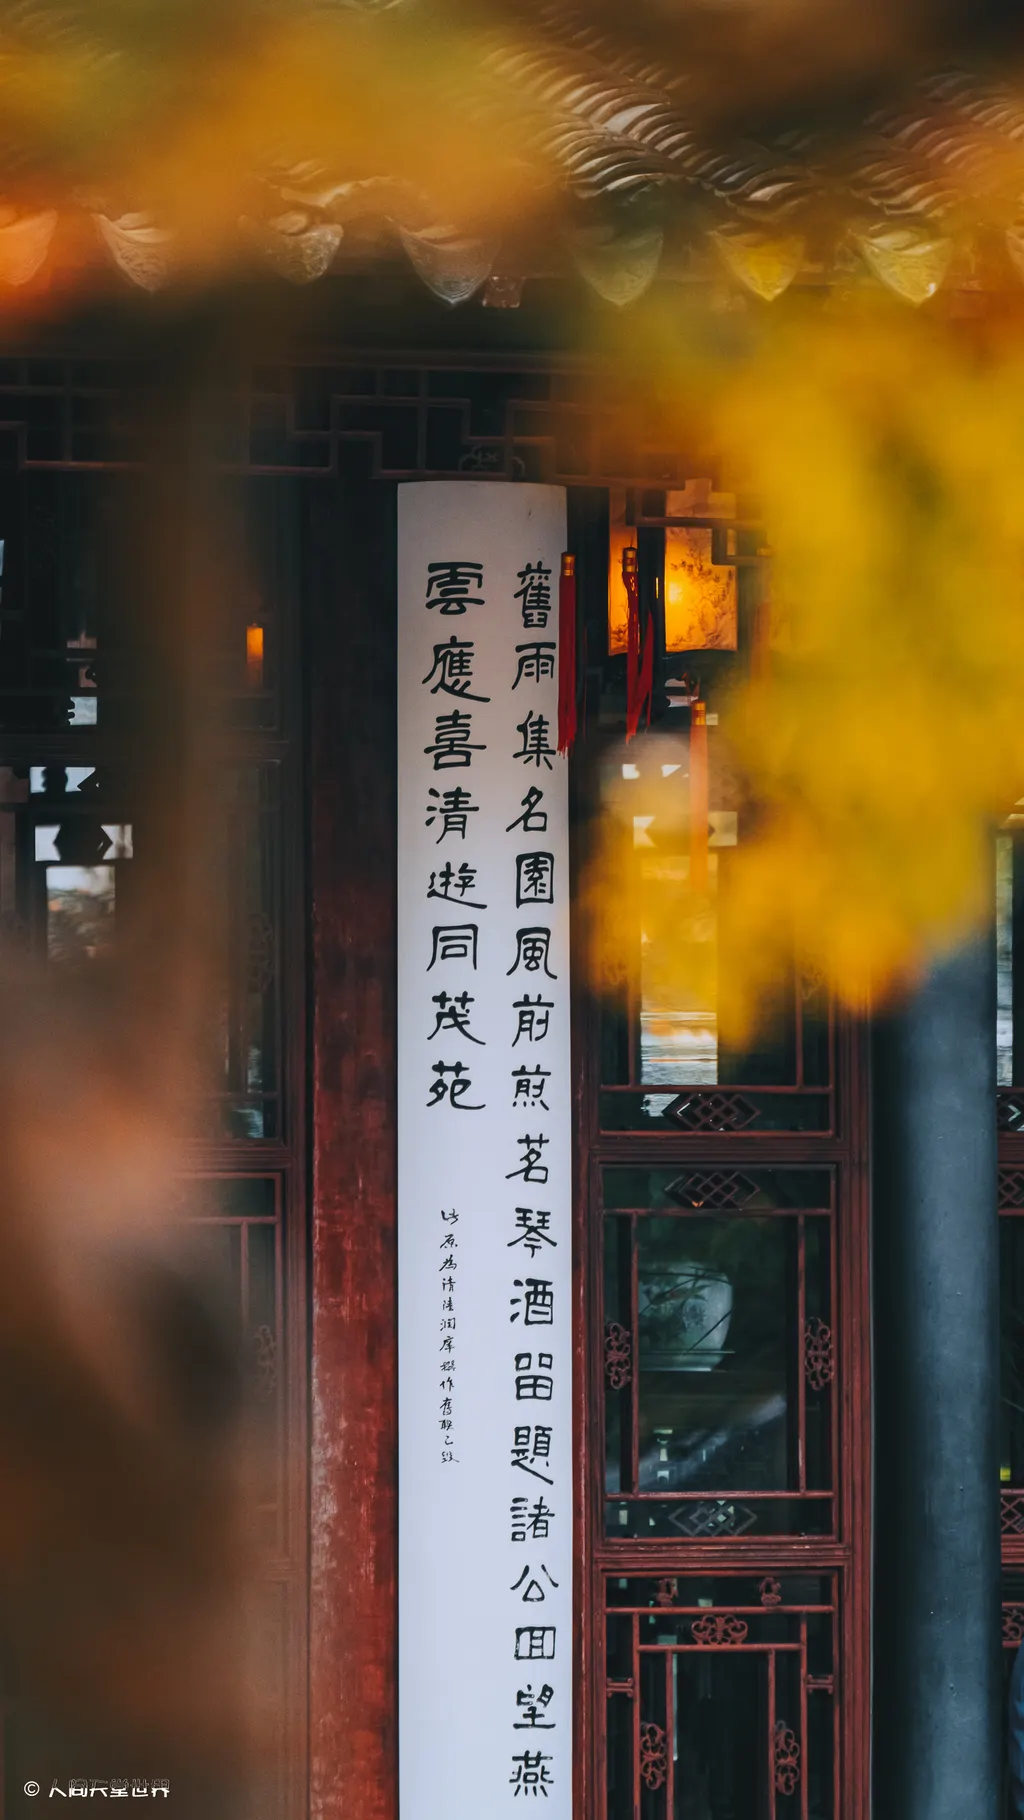 舊雨集名園風前煎茗琴酒留題諸公回望燕
雲應喜清遊同茂苑
此原為清陸潤庠撰作舊聯已毀
© 人间天堂世界